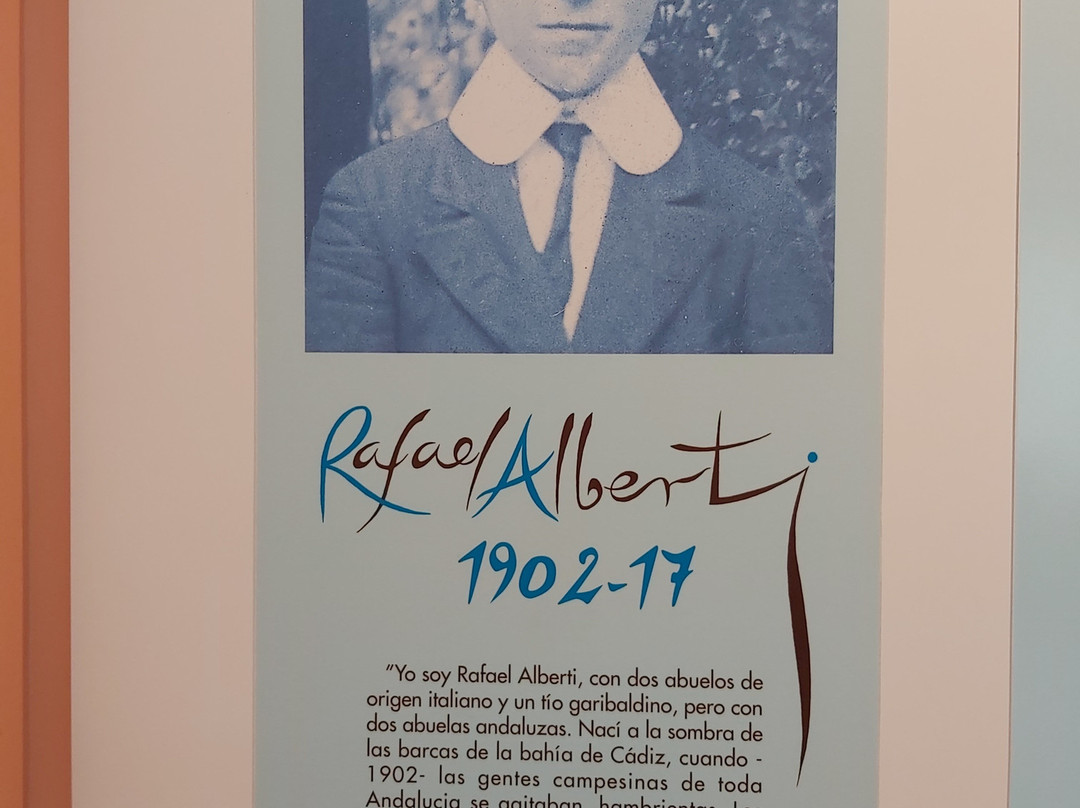 Rafael Alberti
1902-17
"Yo soy Rafael Alberti, con dos abuelos de
origen italiano y un tío garibaldino, pero con
dos abuelas andaluzas. Nací a la sombra de
las barcas de la bahía de Cádiz, cuando -
1902- las gentes campesinas de toda
Andalucia se agitaban, hambrientas. Los